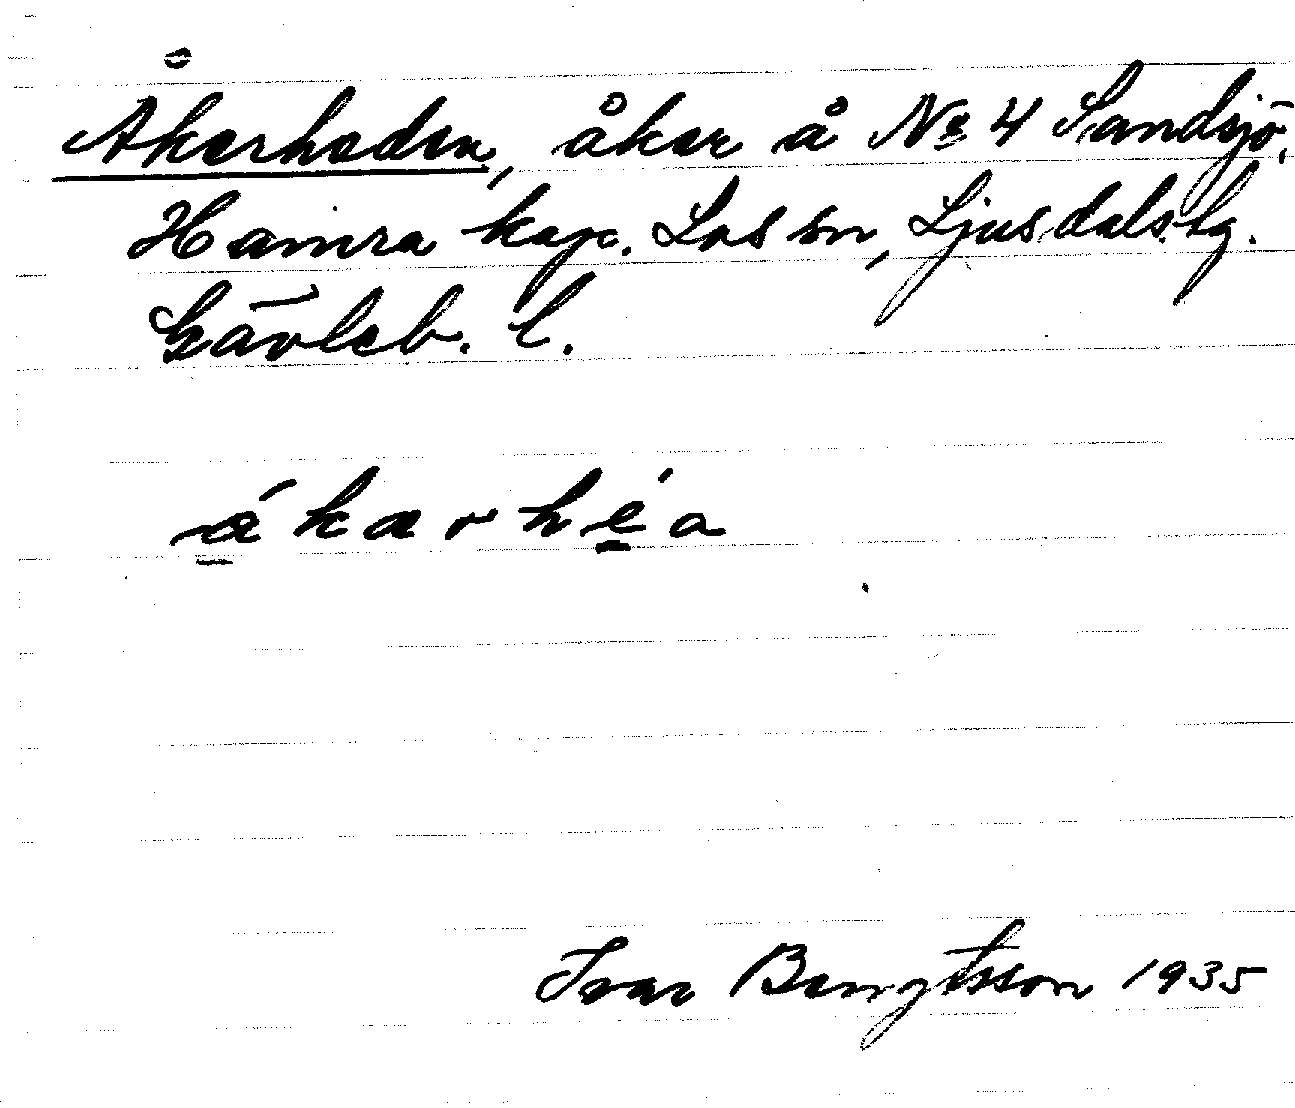 Åkerheden, åker å № 4 Sandsjö,
Hamra kap. Los sn, Ljusdals tg.
Gävleb. l.
ákærhéa
Ivar Bengtsson 1935